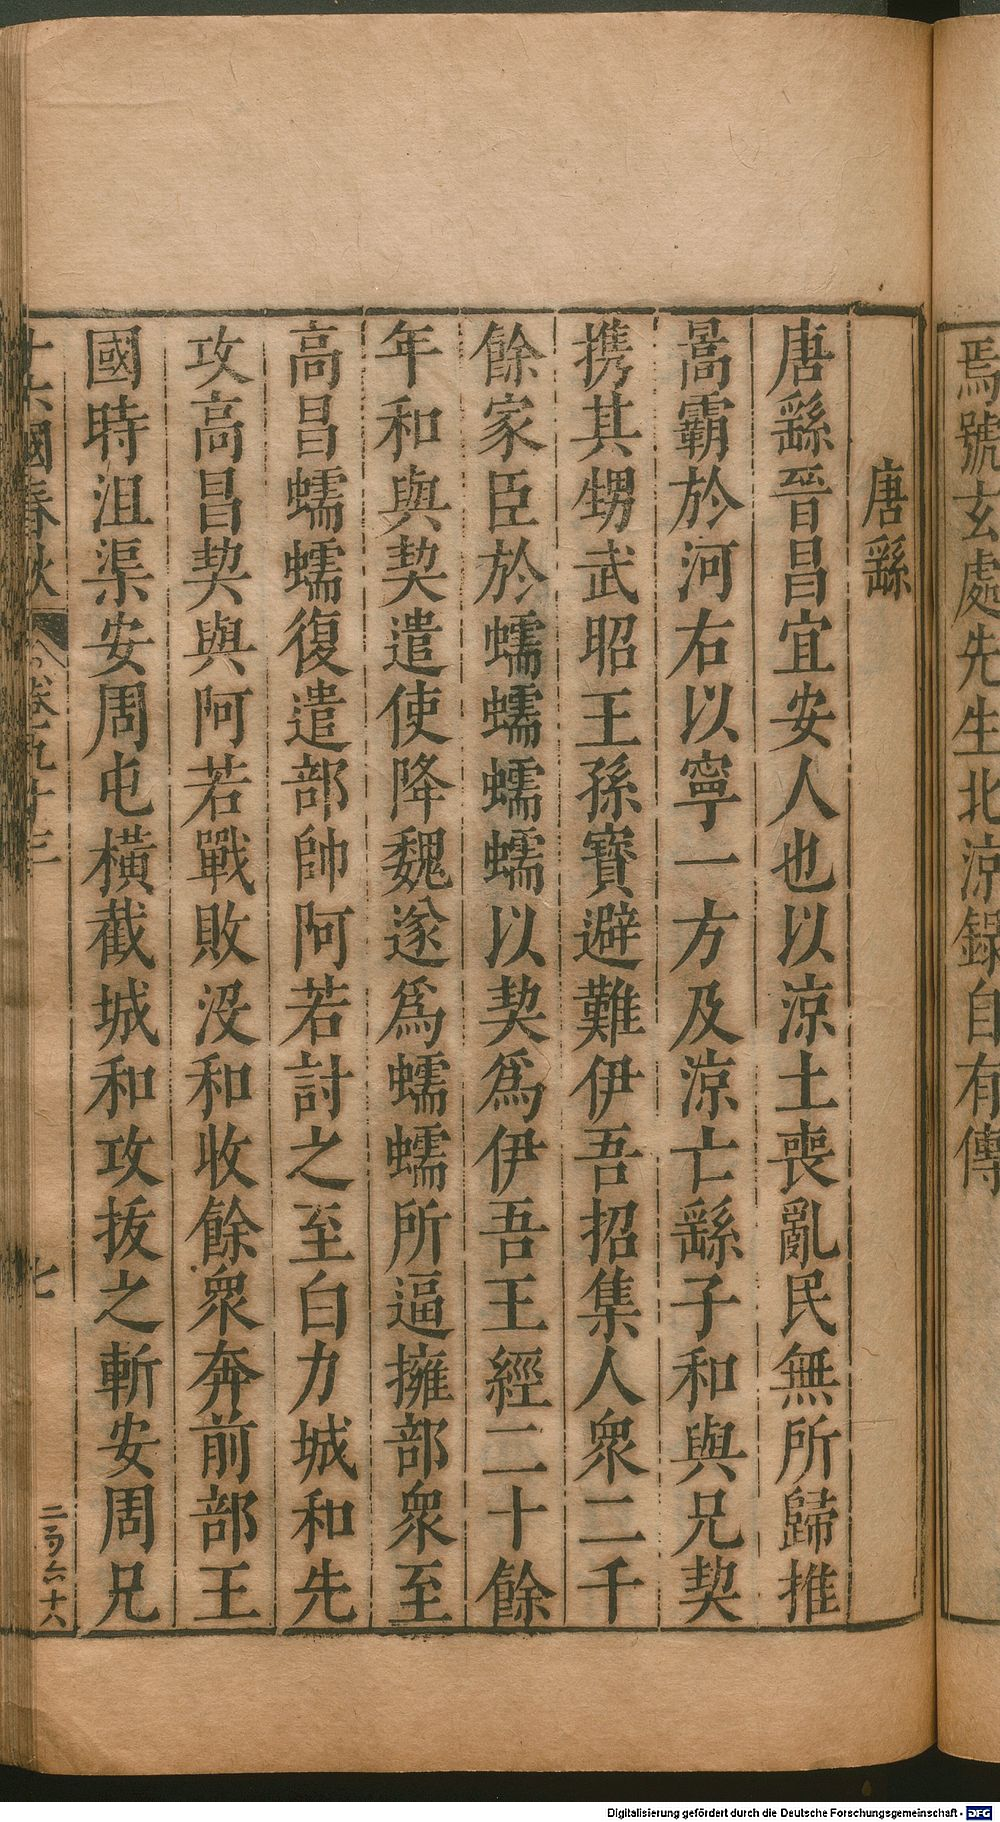 焉號玄處先生北涼錄自有傳
唐繇
唐繇晉昌宜安人也以涼土喪亂民無所歸推
暠霸於河右以寧一方及涼亡繇子和與兄契
携其甥武昭王孫寳避難伊吾招集人衆二千
餘家臣於蠕蠕蠕蠕以契爲伊吾王經二十餘
年和與契遣使降魏遂爲蠕蠕所逼擁部衆至
高昌蠕蠕復遣部帥阿若討之至白力城和先
攻高昌契與阿若戰敗没和收餘衆奔前部王
國時沮渠安周屯橫截城和攻拔之斬安周兄
十六國春秋
卷之九十三
七
二百六十八
Digitalisierung gefördert durch die Deutsche Forschungsgemeinschaft - DFG